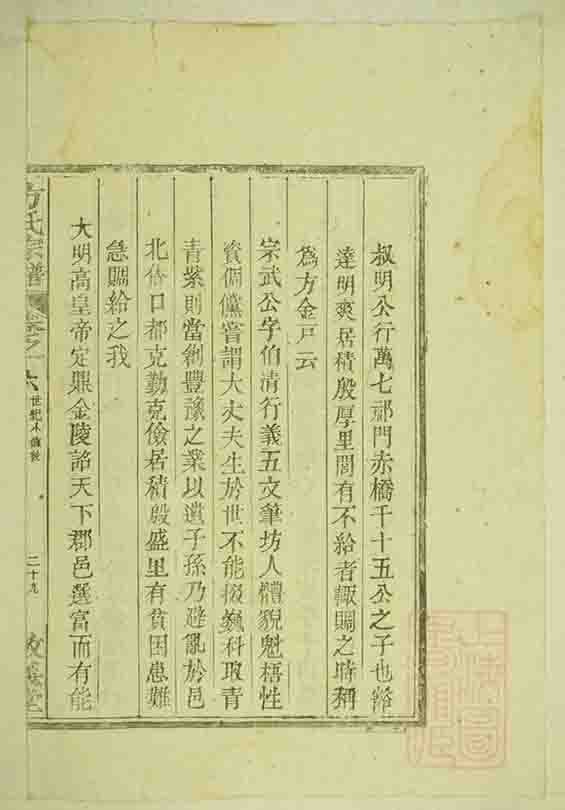 叔明公行萬七祁門赤橋千十五公之子也豁
達明爽居積殷厚里閭有不給者輒賙之時稱
為方金戸云
宗武公字伯清行義五文筆坊人體貌魁梧性
資倜儻嘗謂大丈夫生於世不能掇巍科取青
青紫則當創豐豫之業以遺子孫乃避亂於邑
北依口都克勤克儉居積殷盛里有貧困患難
急賙給之我
大明高皇帝定鼎金陵詔天下郡邑選富而有能
方氏宗譜
卷之一六
世紀
二十九
堂